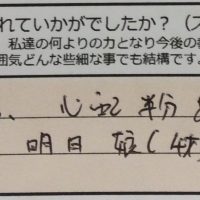 れていかがでしたか？（ス
私達の何よりの力となり今後の
囲気どんな些細な事でも結構です。
、心配 半分
明日